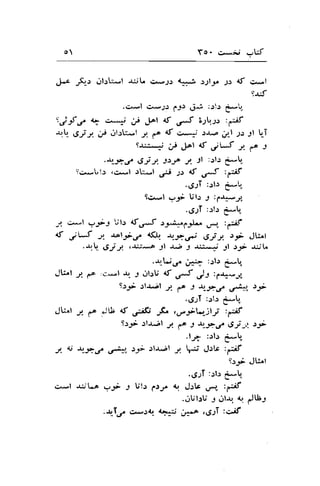 کتاب نخست ۳۵۰ ۵۱
است که در موارد شبیه درست مانند استادان دیگر عمل
کند؟
پاسخ داد: شق دوم درست است.
گفتم: دربارهٔ کسی که اهل فن نیست چه می‌گوئی؟
آیا او در این صدد نیست که هم بر استادان فن برتری یابد
و هم بر کسانی که اهل فن نیستند؟
پاسخ داد: او بر هردو برتری می‌جوید.
گفتم: کسی که در فنی استاد است، داناست؟
پاسخ داد: آری.
پرسیدم: و دانا خوب است؟
پاسخ داد: آری.
گفتم: پس معلوم‌میشود کسی‌که دانا وخوب است بر
امثال خود برتری نمی‌جوید بلکه می‌خواهد بر کسانی که
مانند خود او نیستند و ضد او هستند، برتری یابد.
پاسخ داد: چنین می‌نماید.
پرسیدم: ولی کسی که نادان و بد است. هم بر امثال
خود پیشی می‌جوید و هم بر اضداد خود؟
پاسخ داد: آری.
گفتم: تراز‌یماخوس، مگر نگفتی که ظالم هم بر امثال
خود برتری می‌جوید و هم بر اضداد خود؟
پاسخ داد: چرا.
گفتم: عادل تنها بر اضداد خود پیشی می‌جوید نه بر
امثال خود؟
پاسخ داد: آری.
گفتم: پس عادل به مردم دانا و خوب همانند است
وظالم به بدان و نادانان.
گفت: آری، همین نتیجه به‌دست می‌آید.